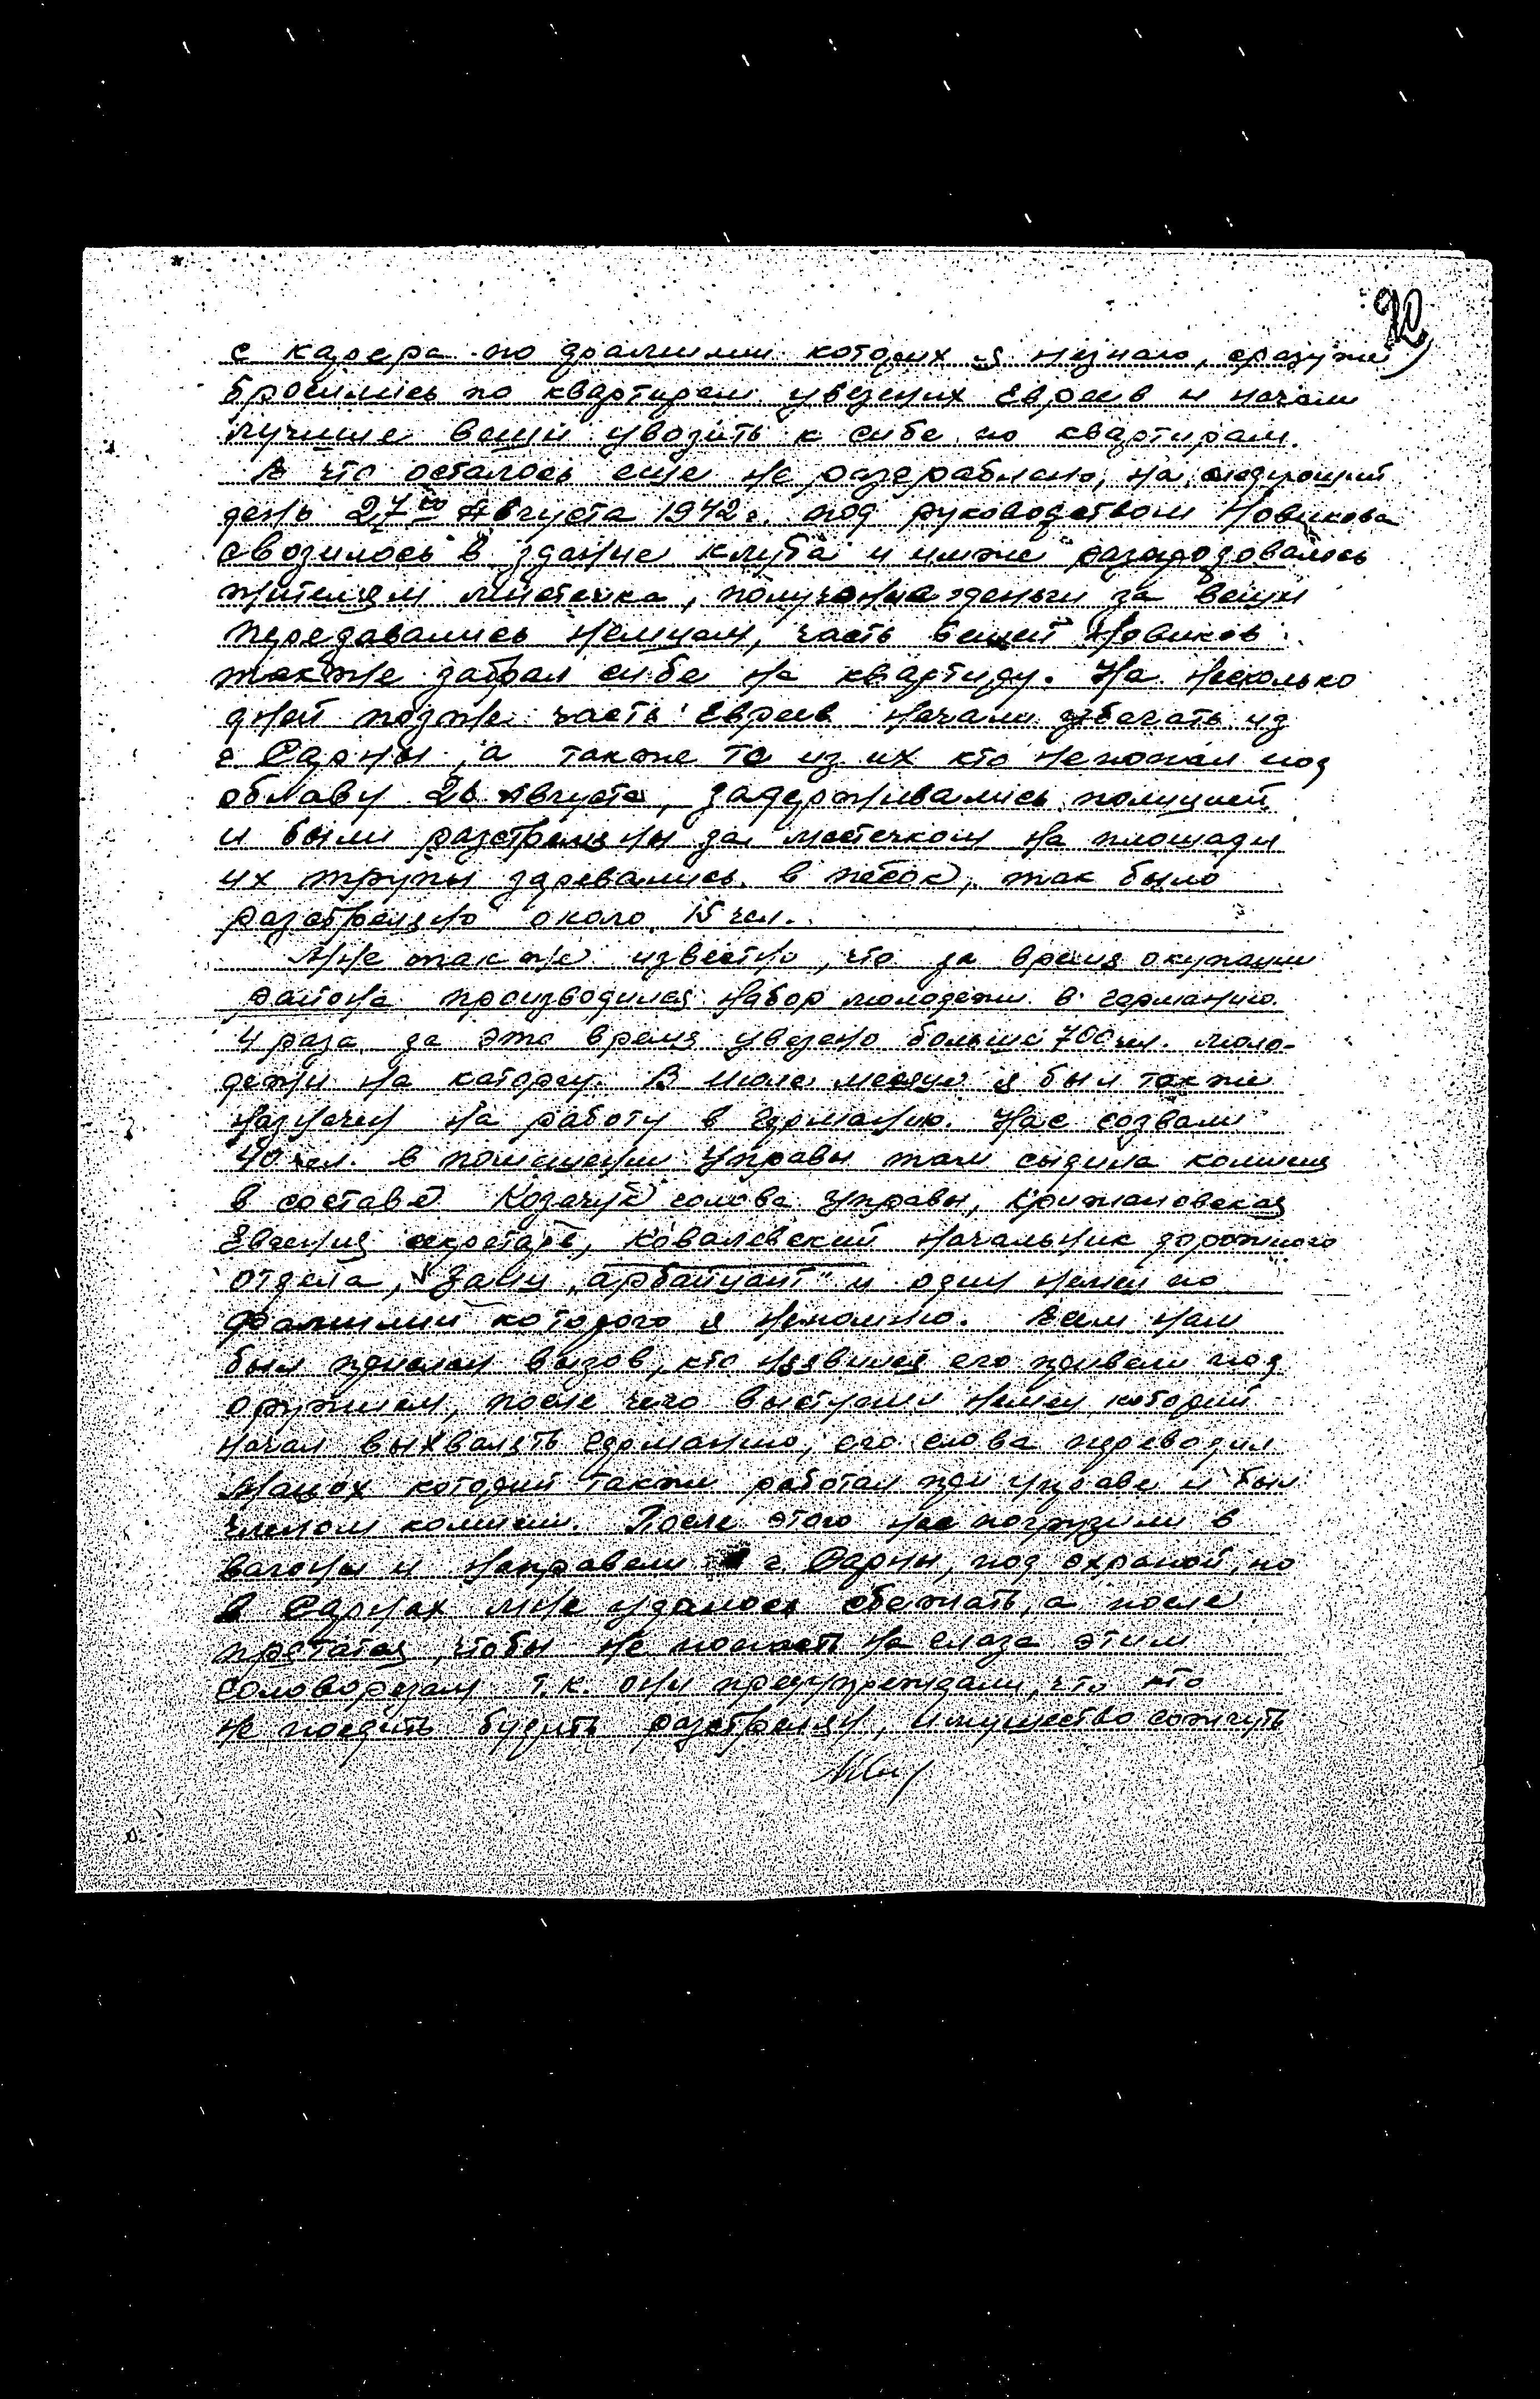 20
с карера по фамилии которих я незнаю, сразуже
бросились по квартирам увезених Евреев и начали
лучшие вещи увозить к себе по квартирам.
А что осталось еще не разграблено, на следующий
день 27го Августа 1942 г. под руководством Новикова
свозилось в здание клуба и имже разпродовалось
жителям мистечка, полученые деньги за вещи
передавались немцам, часть вещей Новиков
также забрал себе на квартиру. На несколько
дней позже часть Евреев начали убегать из
г. Сарны, а также те из их кто непопал под
облаву 26 августа, задерживались полицией
и были разстреляны за местечком на площади
их трупы зарывались в песок, так было
разстреляно около 15 чел.
Мне так же известно, что за время окупации
района производился набор молодежи в германию
4 раза за это время увезено больше 700 чел. моло-
дежи на каторгу. В июле месяце я был также
назначен на работу в германию. Нас созвали
40 чел. в помещении Управы там сыдила комисия
в составе Козачук голова управы, Крижановская
Евгения секретарь, Ковалевский начальник дорожного
отдела, Занц "арбайцамт" и один немец по
фамилии которого я непомню. Всем нам
был прислан вызов, кто неявился его привели под
оружием, после чего выступил немец, который
начал выхвалять германию, его слова переводил
который также работал при управе и был
членом комисии. После этого нас погрузили в
вагоны и направели г. Сарны, под охраной, но
в Сарнах мне удалось сбежать, а после
прятатся, чтобы не попасть на глаза этим
головорезам т.к. они предупреждали, что кто
не поедить будить разстрелян, имущество сожгуть